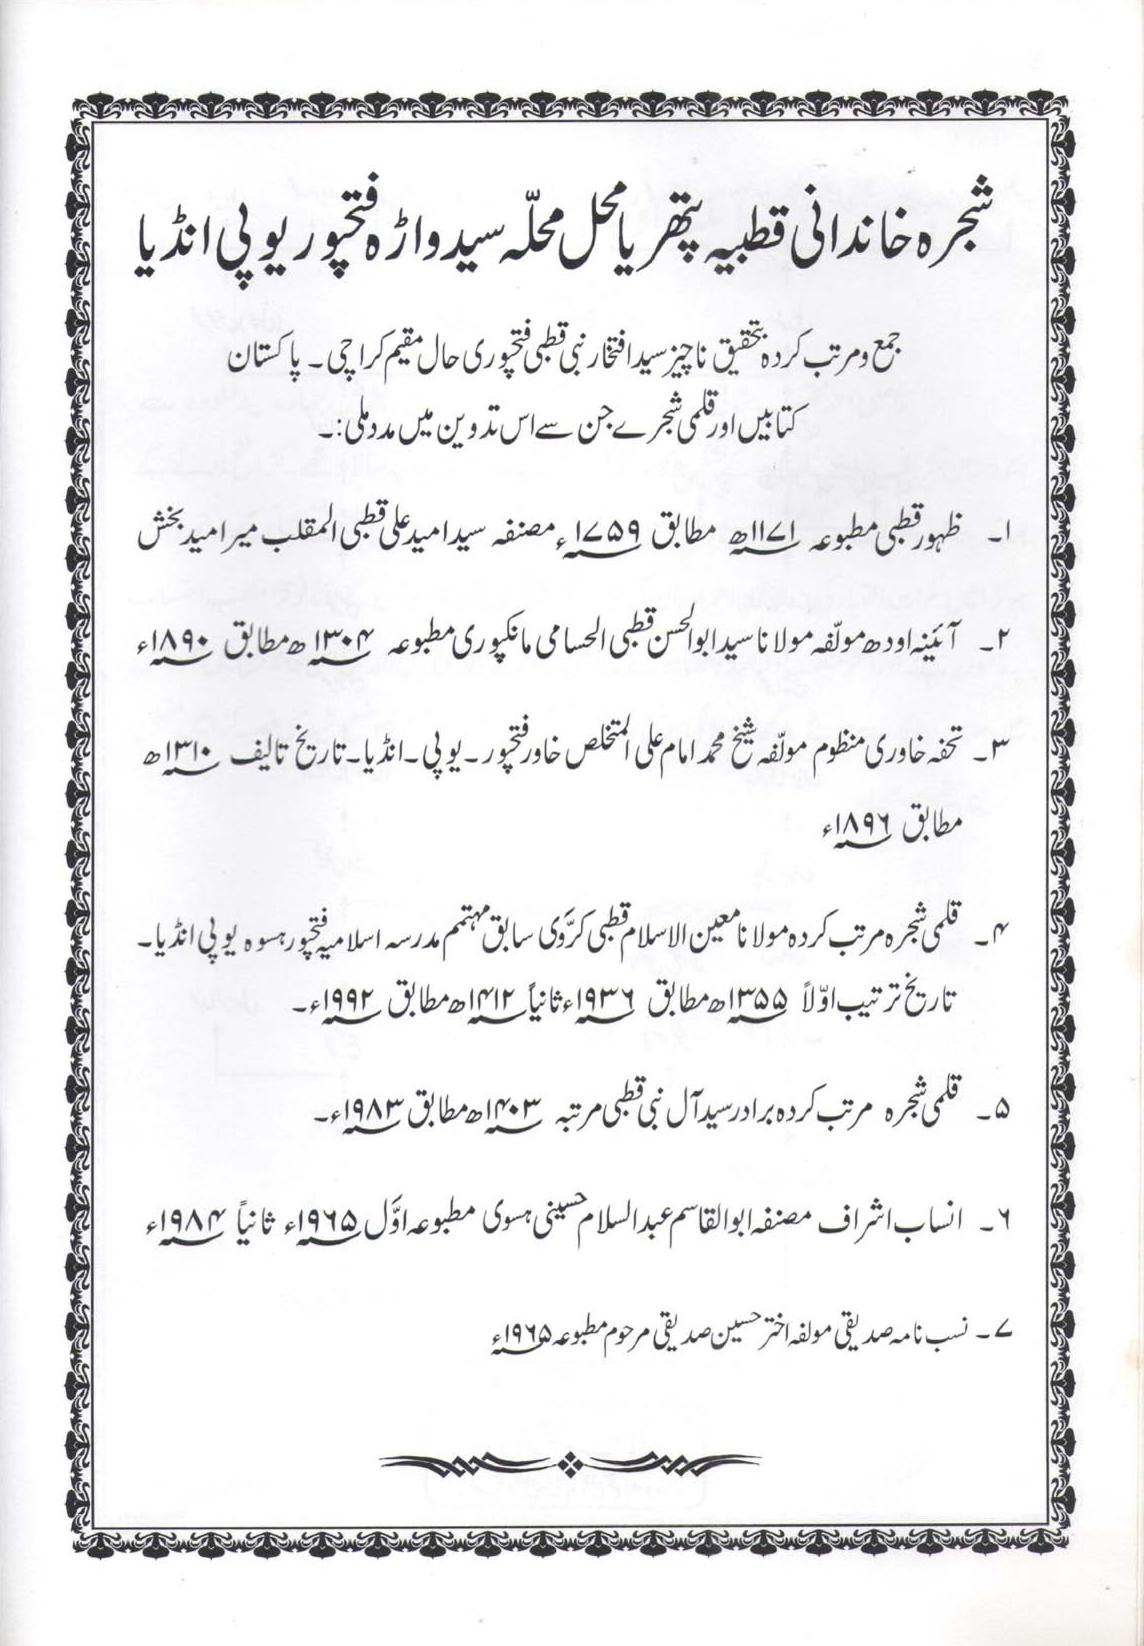 شجرہ خاندانی قطبیہ پتھریا محل محلّہ سید واڑہ فتحپور یوپی انڈیا
جمع و مرتب کردہ بتحقیق ناچیز سید افتخار نبی قطبی فتحپوری حال مقیم کراچی۔ پاکستان
کتابیں اور قلمی شجرے جن سے اس تدوین میں مدد ملی:۔
۱۔ ظہور قطبی مطبوعہ ۱۱۷۱ھ مطابق ۱۷۵۹ء مصنفہ سید امید علی قطبی المقلب میر امید بخش
۲۔ آئینہ اودھ مولّفہ مولانا سید ابوالحسن قطبی الحسامی مانکپوری مطبوعہ ۱۳۰۴ھ مطابق ۱۸۹۰ء
۳۔ تحفہ خاوری منظوم مولّفہ شیخ محمد امام علی المتخلص خاور فتحپور۔ یوپی۔ انڈیا۔ تاریخ تالیف ۱۳۱۰ھ
مطابق ۱۸۹۶ء
۴۔ قلمی شجرہ مرتب کردہ مولانا معین الاسلام قطبی کرَّوی سابق مہتمم مدرسہ اسلامیہ فتحپور ہسوہ یوپی انڈیا۔
تاریخ ترتیب اوّلاً ۱۳۵۵ھ مطابق ۱۹۳۶ء ثانیاً ۱۴۱۲ھ مطابق ۱۹۹۲ء۔
۵۔ قلمی شجرہ مرتب کردہ برادر سید آل نبی قطبی مرتبہ ۱۴۰۳ھ مطابق ۱۹۸۳ء۔
۶۔ انساب اشراف مصنفہ ابوالقاسم عبدالسلام حسینی ہسوی مطبوعہ اوَّل ۱۹۶۵ء ثانیاً ۱۹۸۴ء
۷۔ نسب نامہ صدیقی مولفہ اختر حسین صدیقی مرحوم مطبوعہ ۱۹۶۵ء